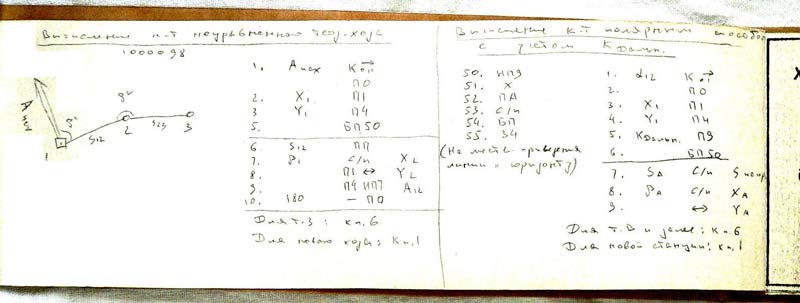 Вычисление к-т неуравненного теод. хода
1000098
1. Aнач K оп
ПО
2. X1 П1
3. Y1 П4
5. БП50
6 S12 ПП
7. β1 С/п X2
8. П1 ↔ Y2
9. П4 ИП7 A12
10. 180 — ПО
Для т.3: к п.6
Для нового хода: к п.1
Aнач
β1
β2
S12
S23
1 2 3
Вычисление к-т полярным способом
с учетом K дальн.
50. ИП9
51. X
52. ПД
53. С/п
54. БП
55. 34
(На месте приведения
линии к горизонту)
1. α12 K оп
2. ПО
3. X1 П1
4. Y1 П4
5. K дальн. П9
6. БП50
7. SA С/п
8. βA С/п XA
9. ↔ YA
Для т.В и далее: к п.6
Для новой станции: к п.1